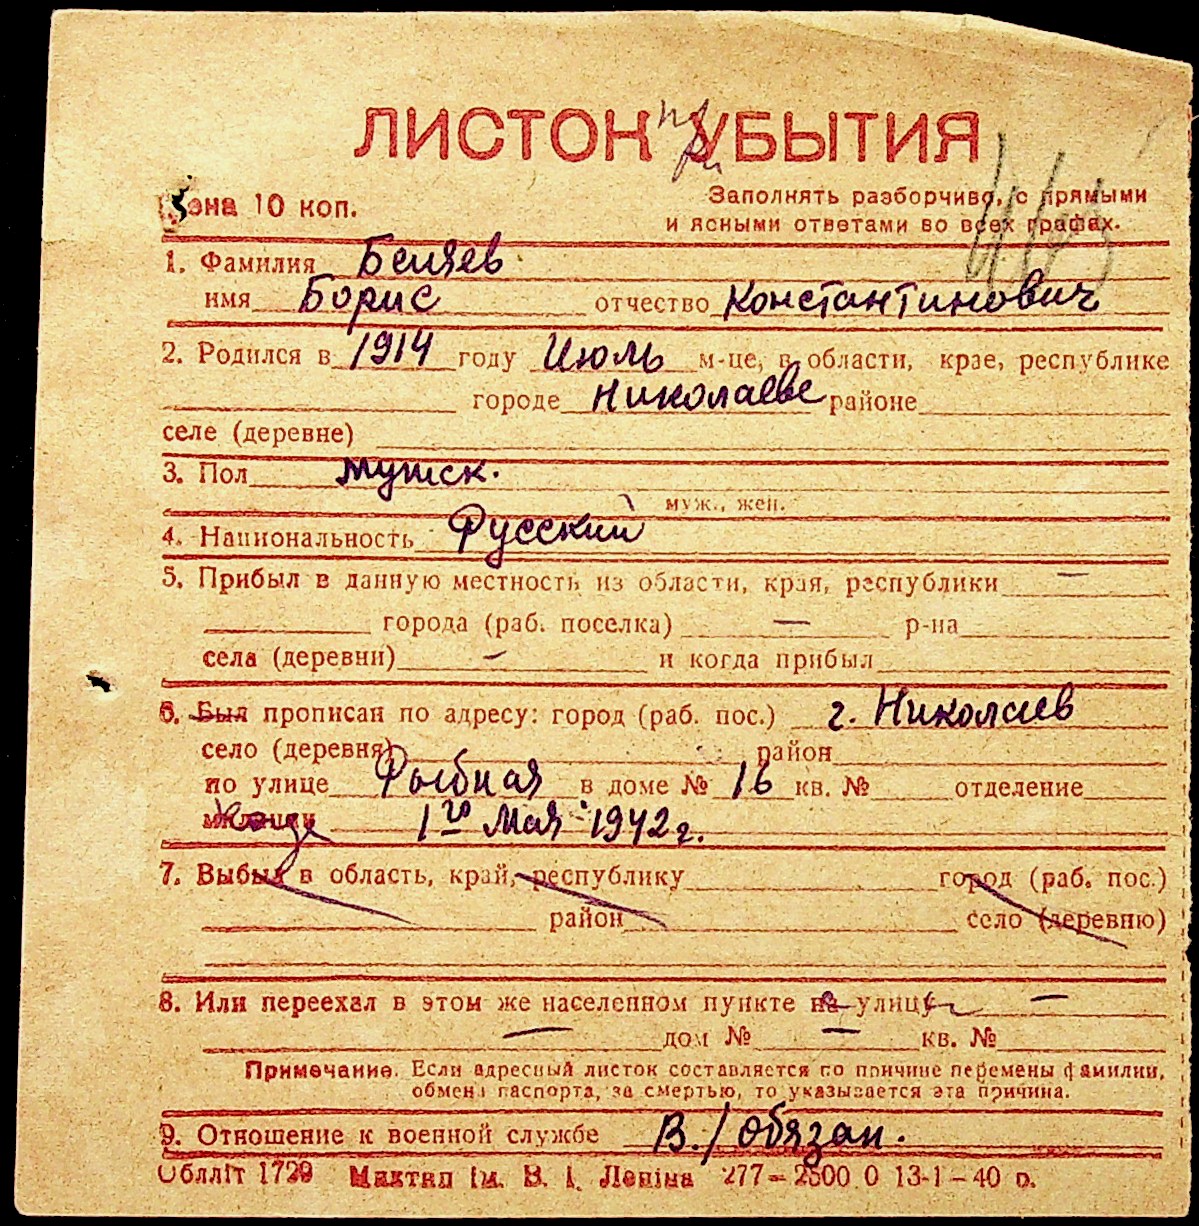 ЛИСТОК при УБЫТИЯ
Цена 10 коп.
Заполнять разборчиво, с прямыми
и ясными ответами во всех графах.
1. Фамилия Беляев
имя Борис отчество Константинович
2. Родился в 1914 году Июль м-це, в области, крае, республике
городе Николаеве районе
селе (деревне)
3. Пол мужск.
муж., жен.
4. Национальность Русский
5. Прибыл в данную местность из области, края, республики —
города (раб. поселка) — р-на
села (деревни) — и когда прибыл
6. Был прописан по адресу: город (раб. пос.) г. Николаев
село (деревня) район
по улице Рыбная в доме № 16 кв. № отделение
милиции 1го Мая 1942 г.
7. Выбыл в область, край, республику город (раб. пос.)
район село (деревню)
8. Или переехал в этом же населенном пункте на улицу —
— дом № — кв. №
Примечание. Если адресный листок составляется по причине перемены фамилии,
обмена паспорта, за смертью, то указывается эта причина.
9. Отношение к военной службе В./обязан.
Обллiт 1729 Миктип Iм. В. I. Ленiна 277—2500 0 13-1-40 р.